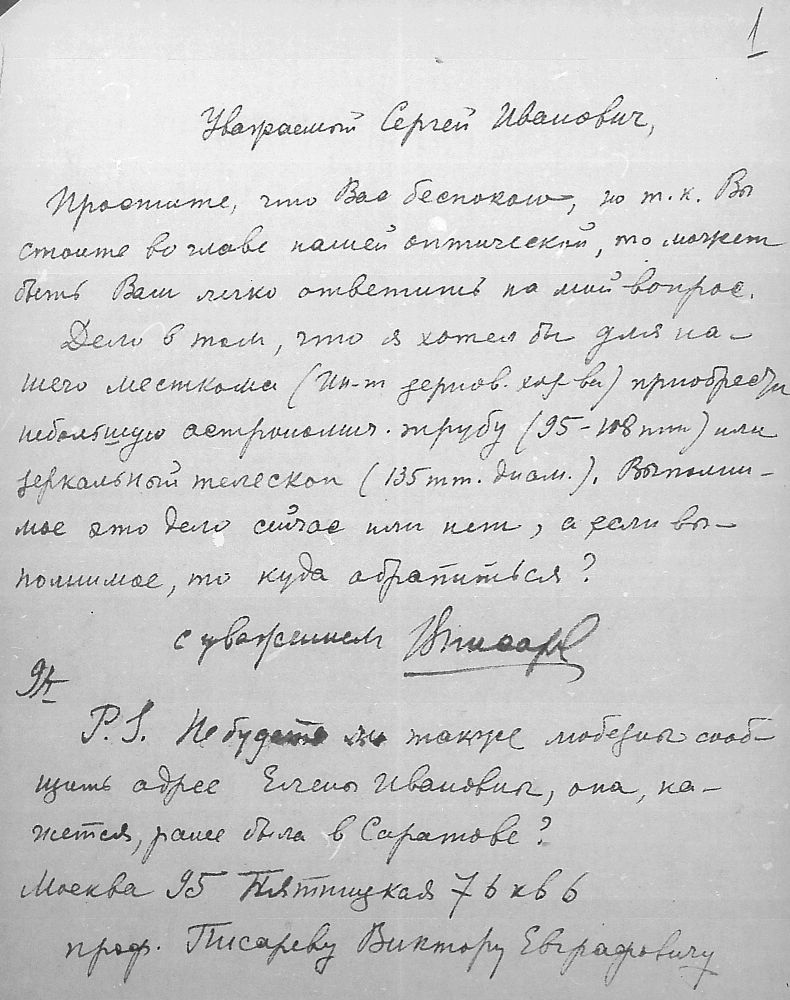 1
Уважаемый Сергей Иванович,
Простите, что Вас беспокою, но т.к. Вы
стоите во главе нашей оптической, то может
быть Вам легко ответить на мой вопрос.
Дело в том, что я хотел бы для на-
шего месткома (Ин-т зернов. хоз-ва) приобрести
небольшую астрономич. трубу (95-108 mm) или
зеркальный телескоп (135 mm. диам.). Выполни-
мое это дело сейчас или нет, а если вы-
полнимое, то куда обратиться?
с уважением ВПисарев
P.S. Не будете ли также любезны сооб-
щить адрес Елены Ивановны, она, ка-
жется, ранее была в Саратове?
Москва 95 Пятницкая 76 кв 6
проф. Писареву Виктору Евграфовичу